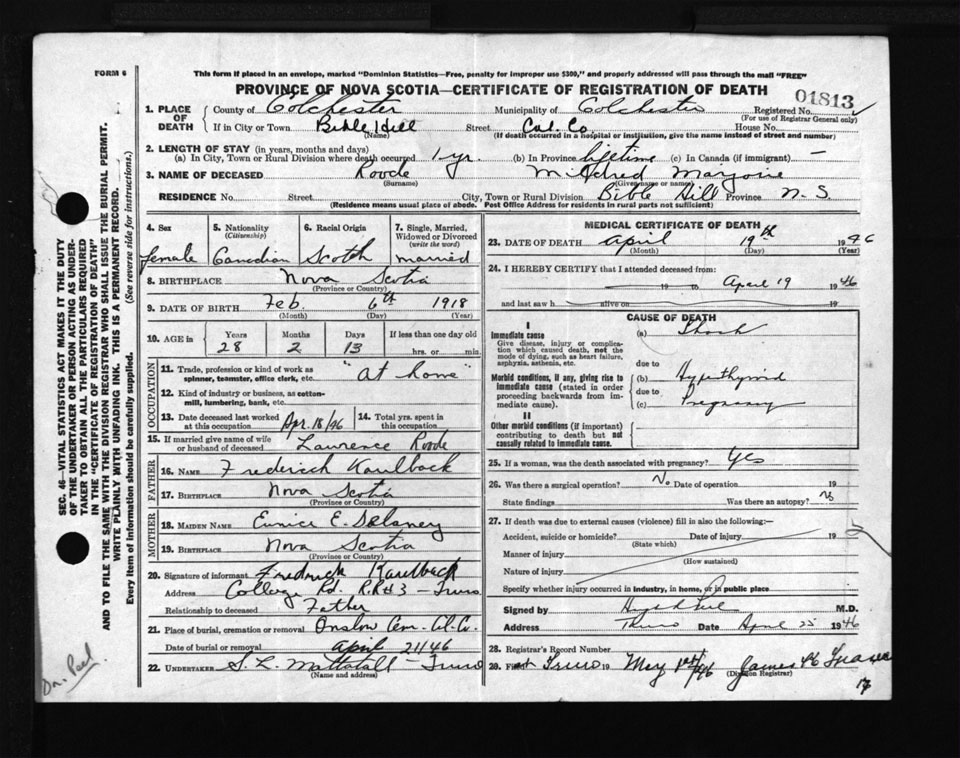 FORM 6
This form if placed in an envelope, marked "Dominion Statistics—Free, penalty for improper use $300," and properly addressed will pass through the mail "FREE"
PROVINCE OF NOVA SCOTIA—CERTIFICATE OF REGISTRATION OF DEATH
01813
1. PLACE OF DEATH
County of Colchester Municipality of Colchester Registered No.
(For use of Registrar General only)
If in City or Town Bible Hill Street Col. Co. House No.
(Name) (If death occurred in a hospital or institution, give the name instead of street and number)
2. LENGTH OF STAY (in years, months and days)
(a) In City, Town or Rural Division where death occurred 1 yr. (b) In Province lifetime (c) In Canada (if immigrant) —
3. NAME OF DECEASED Roode Mildred Marjorie
(Surname) (Given name or names)
RESIDENCE No. Street City, Town or Rural Division Bible Hill Province N. S.
(Residence means usual place of abode. Post Office Address for residents in rural parts not sufficient)
4. Sex 5. Nationality (Citizenship) 6. Racial Origin 7. Single, Married, Widowed or Divorced (write the word)
female Canadian Scotch married
8. BIRTHPLACE Nova Scotia
(Province or Country)
9. DATE OF BIRTH Feb. 6th 1918
(Month) (Day) (Year)
10. AGE in Years Months Days If less than one day old
28 2 13 hrs. or min.
OCCUPATION
11. Trade, profession or kind of work as spinner, teamster, office clerk, etc. "at home"
12. Kind of industry or business, as cotton-mill, lumbering, bank, etc.
13. Date deceased last worked at this occupation Apr. 18/46 14. Total yrs. spent in this occupation
15. If married give name of wife or husband of deceased Lawrence Roode
FATHER
16. NAME Frederick Kaulback
17. BIRTHPLACE Nova Scotia
(Province or Country)
MOTHER
18. MAIDEN NAME Eunice E. Delaney
19. BIRTHPLACE Nova Scotia
(Province or Country)
20. Signature of informant Fredrick Kaulback
Address College Rd. R.R#3 – Truro
Relationship to deceased Father
21. Place of burial, cremation or removal Onslow Cem. Col. Co.
Date of burial or removal April 21/46
22. UNDERTAKER S. L. Mattatall – Truro
(Name and address)
MEDICAL CERTIFICATE OF DEATH
23. DATE OF DEATH April 19th 1946
(Month) (Day) (Year)
24. I HEREBY CERTIFY that I attended deceased from:
19 to April 19 1946
and last saw h alive on 19
CAUSE OF DEATH
I
Immediate cause (a) Shock
Give disease, injury or complication which caused death, not the mode of dying, such as heart failure, asphyxia, asthenia, etc.
due to
Morbid conditions, if any, giving rise to immediate cause (stated in order proceeding backwards from immediate cause).
(b) Hyperthyroid
due to
(c) Pregnancy
II
Other morbid conditions (if important) contributing to death but not causally related to immediate cause.
25. If a woman, was the death associated with pregnancy? Yes
26. Was there a surgical operation? No Date of operation 19
State findings Was there an autopsy? No
27. If death was due to external causes (violence) fill in also the following:—
Accident, suicide or homicide? Date of injury 19
(State which)
Manner of injury
(How sustained)
Nature of injury
Specify whether injury occurred in industry, in home, or in public place
Signed by M.D.
Address Truro Date April 22 1946
28. Registrar's Record Number
29. Filed at Truro 19 May 1st/46
(Division Registrar)
SEC. 46—VITAL STATISTICS ACT MAKES IT THE DUTY
OF THE UNDERTAKER OR PERSON ACTING AS UNDERTAKER TO OBTAIN ALL THE PARTICULARS REQUIRED
IN THE "CERTIFICATE OF REGISTRATION OF DEATH"
AND TO FILE THE SAME WITH THE DIVISION REGISTRAR WHO SHALL ISSUE THE BURIAL PERMIT.
WRITE PLAINLY WITH UNFADING INK. THIS IS A PERMANENT RECORD.
Every item of information should be carefully supplied. (See reverse side for instructions.)
Dr. Peel